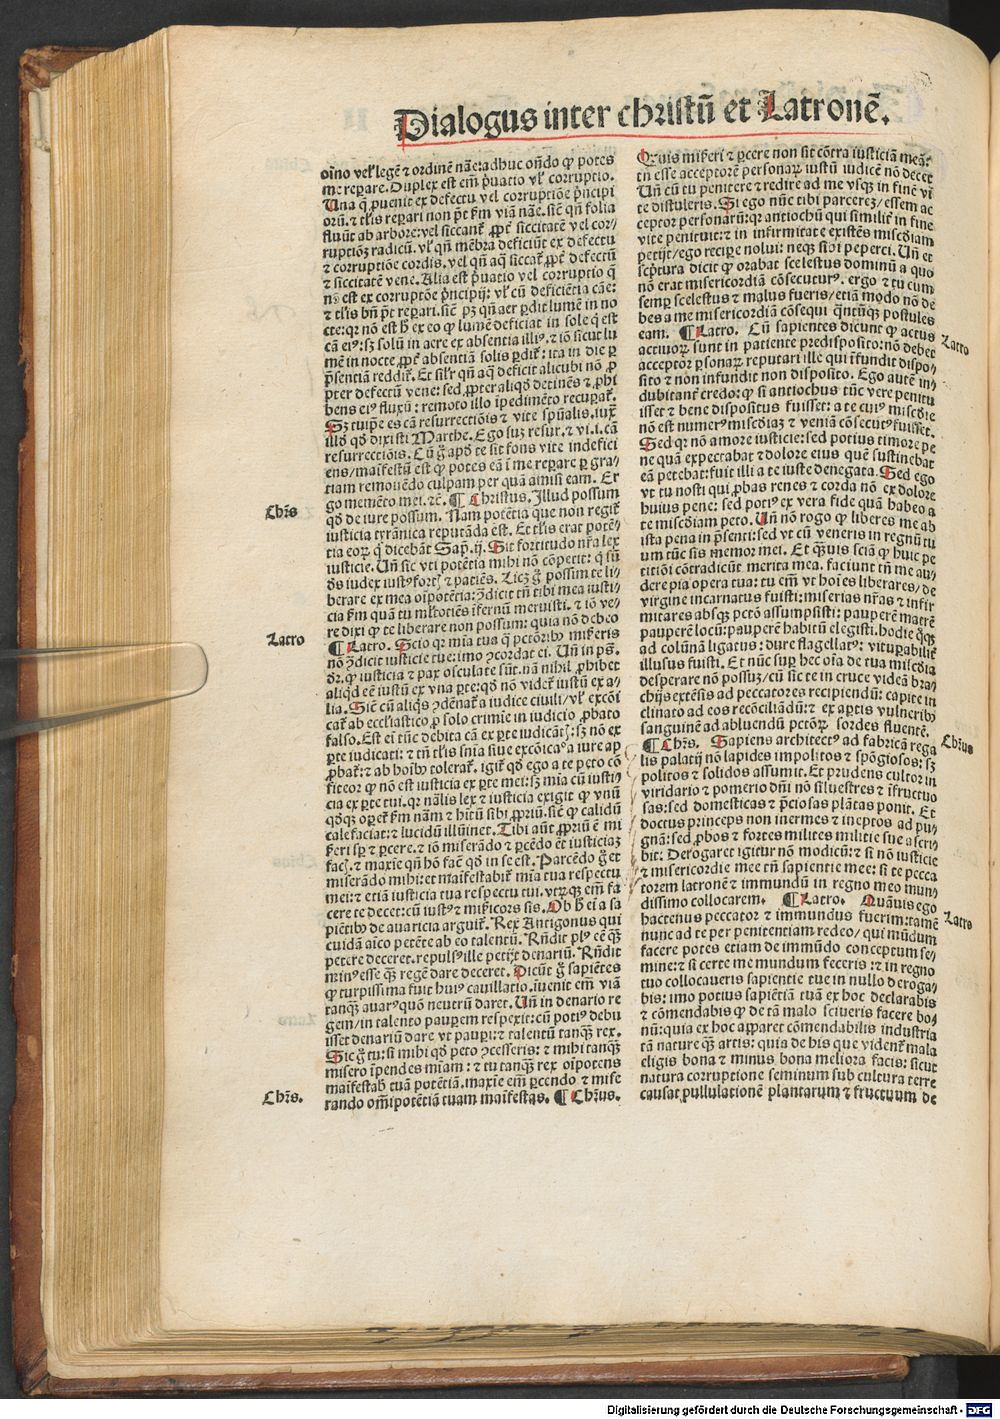 Dialogus inter christū et Latronē.
oīno vel' legē ⁊ ordinē nāe: adhuc oñdo ꝙ potes
me reꝑare. Duplex est em̄ p̄uatio vl' corruptio.
Una q̄ ꝓuenit ex defectu vel corruptiōe p̄ncipi
orū. ⁊ tl'is reꝑari non p̄t ẜm viā nāe. sic̄ qn̄ folia
fluūt ab arbore: vel siccant᷑ ꝓpt᷑ siccitatē vel cor/
ruptiōꝫ radicū. vl' qn̄ mēbra deficiūt ex defectu
⁊ corruptiōe cordis. vel qn̄ aq̄ siccat᷑ ꝓpt᷑ defectū
⁊ siccitatē vene. Alia est p̄uatio vel corruptio q̄
nō est ex corruptōe p̄ncipij: vl' cū deficiētia cāe:
⁊ tl'is bn̄ p̄t reꝑari. sic̄ pꝫ qn̄ aer ꝑdit lumē in no
cte: qr nō est h̄ ex eo ꝙ lumē deficiat in sole q̄ est
cā eiꝰ: sꝫ solū in aere ex absentia illiꝰ. ⁊ iō sicut lu
mē in nocte ꝓpt᷑ absentiā solis ꝑdit᷑: ita in die ꝑ
p̄sentiā reddit᷑. Et sil'r qn̄ aq̄ deficit alicubi nō ꝓ
pter defectū vene: sed ꝓpter aliqd̄ detinēs ⁊ ꝓhi
bens eiꝰ fluxū: remoto illo īpedimēto recuꝑat᷑.
Sꝫ tuip̄e es cā resurrectiōis ⁊ vite sp̄ualis. iuxͣ
illd̄ qd̄ dixisti Marthe. Ego suꝫ resur. ⁊ vi. i. cā
resurrectiōis. Cū g̊ apd̄ te sit fons vite indefici
ens/ maīfestū est ꝙ potes eā ī me reꝑare ꝑ gra/
tiam remouēdo culpam per quā amisi eam. Er
go memēto mei. ⁊č. ¶ Christus. Illud possum
qd̄ de iure possum. Nam potētia que non regit᷑
iusticia tyrānica reputāda ēst. Et tl'is erat potē/
tia eoꝝ q̄ dicebāt Sap̄. ij. Sit fortitudo nr̄a lex
iusticie. Un̄ sic vti potētia mihi nō cōpetit: q̄ sū
dš iudex iustꝰ fortꝭ ⁊ patiēs. Licꝫ g̊ possim te li/
berare ex mea oīpotētia: ꝯdicit tn̄ tibi mea iusti/
cia ẜm quā tu ml'totiēs ifernū meruisti. ⁊ iō ve/
re dixi ꝙ te liberare non possum: quia nō debeo
¶ Latro. Scio qr mīa tua q̄ petōribꝰ miẜeris
nō ꝯdicit iusticie tue: imo ꝯcordat ei. Un̄ in ps̄.
dr̄. ꝙ iusticia ⁊ pax osculate sūt. nā nihil ꝓhibet
aliqd̄ eē iustū ex vna ꝑte: qd̄ nō videt᷑ iustū ex a/
lia. Sic̄ cū aliqs ꝯdēnat᷑ a iudice ciuili/ vl' excōi
cat᷑ ab eccl'iastico ꝓ solo crimīe in iudicio ꝓbato
falso. Est ei tūc debita cā ex ꝑte iudicātꝭ: sꝫ nō ex
ꝑte iudicati: ⁊ tn̄ tl'is snīa siue excōicaͦ a iure ap/
ꝓbat᷑: ⁊ ab hoībꝰ tolerat᷑. igit᷑ qd̄ ego a te peto cō
fiteor ꝙ nō est iusticia ex ꝑte mei: sꝫ mīa cū iusti/
cia ex ꝑte tui. qr nāl'is lex ⁊ iusticia exigit ꝙ vnū
qd̄qꝫ oꝑet᷑ ẜm nām ⁊ h̄itū sibi ꝓpriū. sic̄ ꝙ calidū
calefaciat: ⁊ lucidū illūinet. Tibi aūt ꝓpriū ē mi
ẜeri sꝑ ⁊ ꝑcere. ⁊ iō miserādo ⁊ ꝑcēdo ēt iusticiaꝫ
facꝭ. ⁊ maxīe qn̄ hō faē qd̄ in se est. Parcēdo g̊ et
miserādo mihi: et maīfestabit᷑ mīa tua respectu
mei: ⁊ etiā iusticia tua respectu tui. vtrꝰqꝫ em̄ fa
cere te decet: cū iustꝰ ⁊ miẜicors sis. Ob h̄ ei a sa
piētibꝰ de auaricia arguit᷑. Rex Antigonus qui
cuidā aīco petēte ab eo talentū. Rn̄dit plꝰ eē q̄ꝫ
petere deceret. repulsꝰ ille petijt denariū. Rn̄dit
minꝰ esse q̄ꝫ regē dare deceret. Dicūt g̊ sapiētes
ꝙ turpissima fuit huiꝰ cauillatio. iuenit em̄ viā
tanqꝫ auarꝰ quo neutrū daret. Un̄ in denario re
gem/ in talento pauꝑem respexit: cū potiꝰ debu
isset denariū dare vt pauꝑi: ⁊ talentū tanqꝫ rex.
Sic g̊ tu: si mihi qd̄ peto ꝯcesseris: ⁊ mihi tanqꝫ
misero īpendes mīam: ⁊ tu tanqꝫ rex oīpotens
maīfestabꝭ tuā potētiā. maxīe em̄ ꝑcendo ⁊ mise
rando om̄īpotētiā tuam maīfestas. ¶ Chr̄us.
Chr̄s
Latro
Chr̄s.
Quis miẜeri ⁊ ꝑcere non sit cōtra iusticiā meā:
tn̄ esse acceptorē personaꝝ iustū iudicē nō decet
Un̄ cū tu penitere ⁊ redire ad me vsqꝫ in finē vi͏̄
te distuleris. Si ego nūc tibi parcereꝫ/ essem ac
ceptor personarū: qr antiochū qui similit᷑ in fine
vite penituit: ⁊ in infirmitate existēs miscd̄iam
petijt/ ego reciꝑe nolui: neqꝫ sibi peperci. Un̄ et
sc̄ptura dicit ꝙ orabat scelestus dominū a quo
nō erat misericordiā cōsecuturꝰ. ergo ⁊ tu cum
semꝑ scelestus ⁊ malus fueris/ etiā modo nō de
bes a me misericordiā cōsequi q̄ntūqꝫ postules
eam. ¶ Latro. Cū sapientes dicunt ꝙ actus
actiuoꝝ sunt in patiente predisposito: nō debet
acceptor ꝑsonaꝝ reputari ille qui īfundit dispo/
sito ⁊ nōn infundit non disposito. Ego autē in/
dubitant᷑ credo: ꝙ si antiochus tūc vere penitu
isset ⁊ bene dispositus fuisset: a te cuiꝰ miscd̄ie
nō est numerꝰ miscd̄iaꝫ ⁊ veniā cōsecutꝰ fuisset.
Sed qr nō amore iusticie: sed potius timore pe
ne quā expectabat ⁊ dolore eius quē sustinebat
eā petebat: fuit illi a te iuste denegata. Sed ego
vt tu nosti qui ꝓbas renes ⁊ corda nō ex dolore
huius pene: sed potiꝰ ex vera fide quā habeo a
te miscd̄iam peto. Un̄ nō rogo ꝙ liberes me ab
ista pena in p̄senti: sed vt cū veneris in regnū tu
um tūc sis memor mei. Et q̄ꝫuis sciā ꝙ huic pe
titiōi cōtradicūt merita mea. faciunt tn̄ me au/
dere pia opera tua: tu em̄ vt hoīes liberares/ de
virgine incarnatus fuisti: miserias nr̄as ⁊ infir
mitates absqꝫ pctō assumpsisti: pauperē matrē
pauperē locū: pauperē habitū elegisti. hodie q̊qꝫ
ad colūnā ligatus: dure flagellatꝰ: vituꝑabilit᷑
illusus fuisti. Et nūc suꝑ hec oīa de tua miscd̄ia
desperare nō possuꝫ/ cū sic te in cruce videā bra/
chijs extēsis ad peccatores recipiendū: capite in
clinato ad eos recōciliādū: ⁊ ex aꝑtis vulneribꝰ
sanguinē ad abluendū pctōꝝ sordes fluentē.
¶ Chr̄s. Sapiens architectꝰ ad fabricā rega
lis palatij nō lapides impolitos ⁊ spōgiosos: sꝫ
politos ⁊ solidos assumit. Et prudens cultor in
viridario ⁊ pomerio dn̄i nō siluestres ⁊ īfructuo
sas: sed domesticas ⁊ p̄ciosas plātas ponit. Et
doctus princeps non inermes ⁊ ineptos ad pu/
gnā: sed ꝓbos ⁊ fortes milites militie sue ascri/
bit: Derogaret igitur nō modicū: ⁊ si nō iusticie
⁊ misericordie mee tn̄ sapientie mee: si te pecca
torem latronē ⁊ immundū in regno meo mun/
dissimo collocarem. ¶ Latro. Quāuis ego
hactenus peccator ⁊ immundus fuerim: tamē
nunc ad te per penitentiam redeo/ qui mūdum
facere potes etiam de immūdo conceptum se/
mine: ⁊ si certe me mundum feceris: ⁊ in regno
tuo collocaueris sapientie tue in nullo deroga/
bis: imo potius sapiētiā tuā ex hoc declarabis
⁊ cōmendabis ꝙ de tā malo sciueris facere bo/
nū: quia ex hoc apparet cōmendabilis industria
tā nature q̄ꝫ artis: quia de his que vident᷑ mala
eligis bona ⁊ minus bona meliora facis: sicut
natura corruptione seminum sub cultura terre
causat pullulationē plantarum ⁊ fructuum de
Latro
Chr̄us
Latro
Digitalisierung gefördert durch die Deutsche Forschungsgemeinschaft - DFG